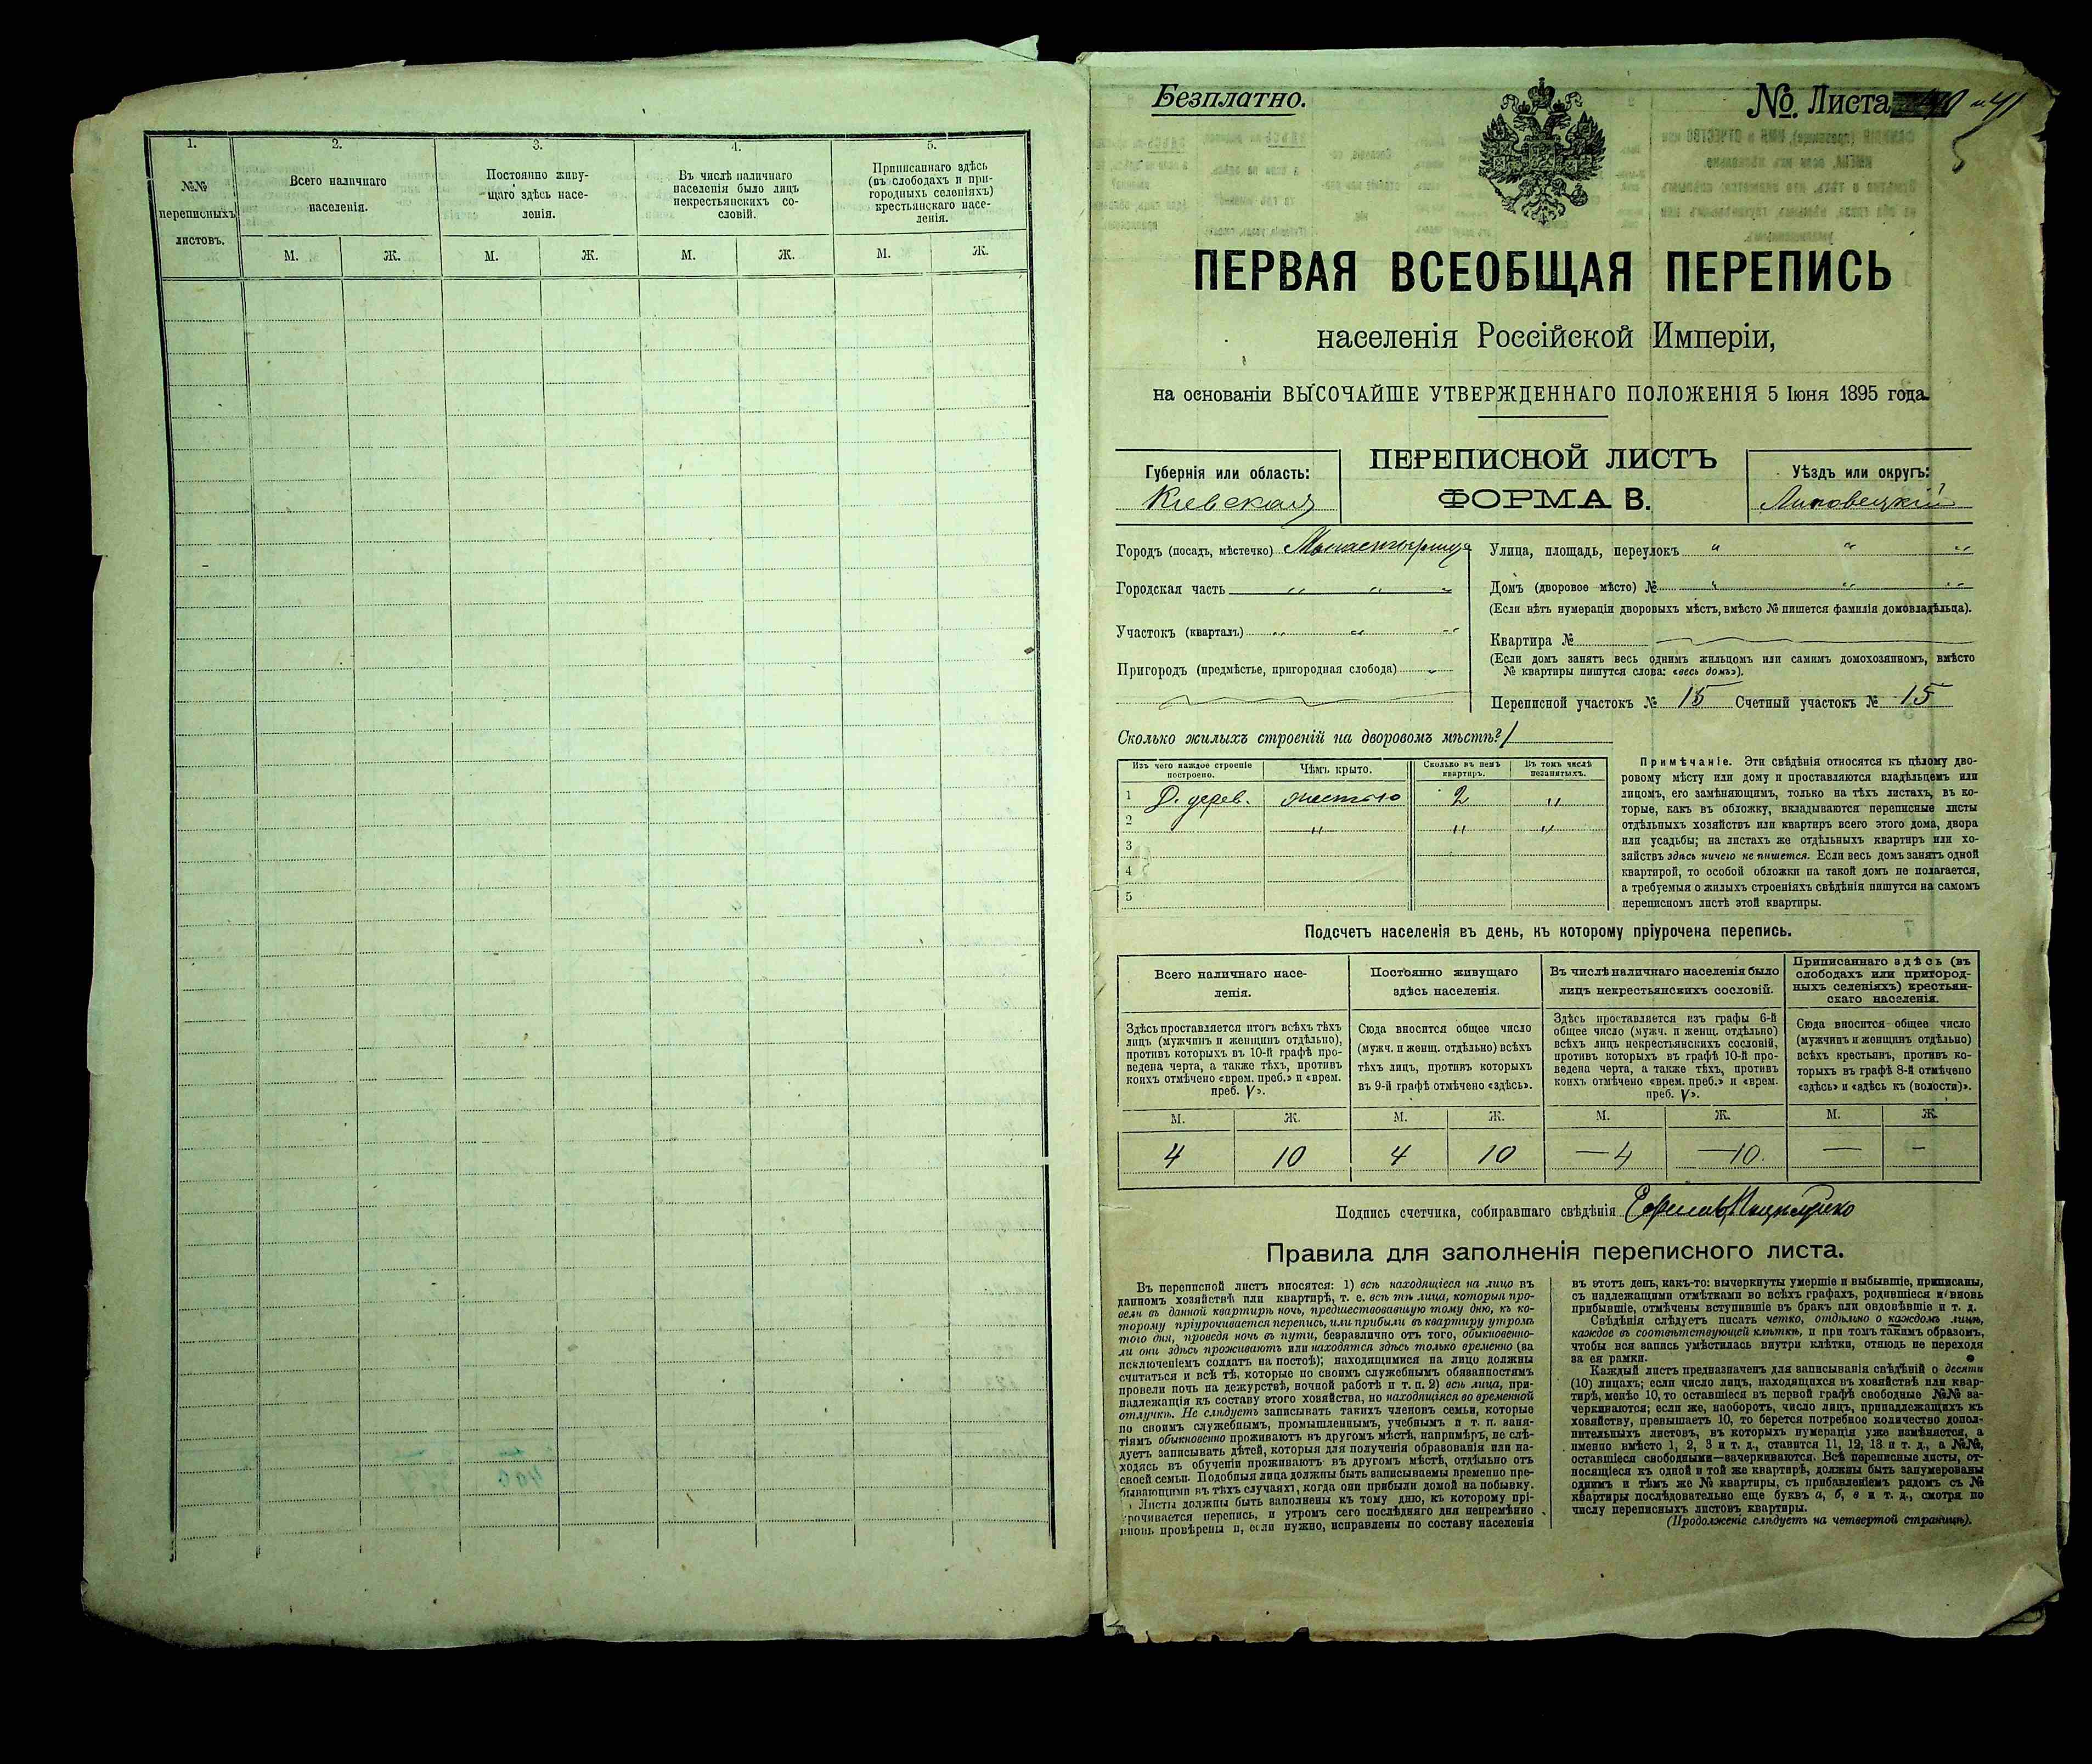 1.
2.
3.
4.
5.
№№
переписныхъ
листовъ.
Всего наличнаго
населенія.
Постоянно живу-
щаго здѣсь насе-
ленія.
Въ числѣ наличнаго
населенія было лицъ
некрестьянскихъ со-
словій.
Приписаннаго здѣсь
(въ слободахъ и при-
городныхъ селеніяхъ)
крестьянскаго насе-
ленія.
М. Ж. М. Ж. М. Ж. М. Ж.
Безплатно.
№ Листа 41
5
ПЕРВАЯ ВСЕОБЩАЯ ПЕРЕПИСЬ
населенія Россійской Имперіи,
на основаніи ВЫСОЧАЙШЕ УТВЕРЖДЕННАГО ПОЛОЖЕНІЯ 5 Іюня 1895 года.
Губернія или область:
Кіевская
ПЕРЕПИСНОЙ ЛИСТЪ
ФОРМА В.
Уѣздъ или округъ:
Липовецкій
Городъ (посадъ, мѣстечко) Монастырище
Городская часть „ „ „
Участокъ (кварталъ) „ „ „
Пригородъ (предмѣстье, пригородная слобода) „
Улица, площадь, переулокъ „ „ „
Домъ (дворовое мѣсто) № „ „ „
(Если нѣтъ нумераціи дворовыхъ мѣстъ, вмѣсто № пишется фамилія домовладѣльца).
Квартира №
(Если домъ занятъ весь однимъ жильцомъ или самимъ домохозяиномъ, вмѣсто
№ квартиры пишутся слова: «весь домъ»).
Переписной участокъ № 15 Счетный участокъ № 15
Сколько жилыхъ строеній на дворовомъ мѣстѣ? 1
Изъ чего каждое строеніе
построено.
Чѣмъ крыто.
Сколько въ немъ
квартиръ.
Въ томъ числѣ
незанятыхъ.
1 Д. дерев. жестью 2 „
2 „ „ „
3
4
5
Примѣчаніе. Эти свѣдѣнія относятся къ цѣлому дво-
ровому мѣсту или дому и проставляются владѣльцемъ или
лицомъ, его замѣняющимъ, только на тѣхъ листахъ, въ ко-
торые, какъ въ обложку, вкладываются переписные листы
отдѣльныхъ хозяйствъ или квартиръ всего этого дома, двора
или усадьбы; на листахъ же отдѣльныхъ квартиръ или хо-
зяйствъ здѣсь ничего не пишется. Если весь домъ занятъ одной
квартирой, то особой обложки на такой домъ не полагается,
а требуемыя о жилыхъ строеніяхъ свѣдѣнія пишутся на самомъ
переписномъ листѣ этой квартиры.
Подсчетъ населенія въ день, къ которому пріурочена перепись.
Всего наличнаго насе-
ленія.
Постоянно живущаго
здѣсь населенія.
Въ числѣ наличнаго населенія было
лицъ некрестьянскихъ сословій.
Приписаннаго здѣсь (въ
слободахъ или пригород-
ныхъ селеніяхъ) крестьян-
скаго населенія.
Здѣсь проставляется итогъ всѣхъ тѣхъ
лицъ (мужчинъ и женщинъ отдѣльно),
противъ которыхъ въ 10-й графѣ про-
ведена черта, а также тѣхъ, противъ
коихъ отмѣчено «врем. преб.» и «врем.
преб. V».
Сюда вносится общее число
(мужч. и женщ. отдѣльно) всѣхъ
тѣхъ лицъ, противъ которыхъ
въ 9-й графѣ отмѣчено «здѣсь».
Здѣсь проставляется изъ графы 6-й
общее число (мужч. и женщ. отдѣльно)
всѣхъ лицъ некрестьянскихъ сословій,
противъ которыхъ въ графѣ 10-й про-
ведена черта, а также тѣхъ, противъ
коихъ отмѣчено «врем. преб.» и «врем.
преб. V».
Сюда вносится общее число
(мужчинъ и женщинъ отдѣльно)
всѣхъ крестьянъ, противъ ко-
торыхъ въ графѣ 8-й отмѣчено
«здѣсь» и «здѣсь къ (волости)».
М. Ж. М. Ж. М. Ж. М. Ж.
4 10 4 10 —4 —10. — —
Подпись счетчика, собиравшаго свѣдѣнія
Правила для заполненія переписного листа.
Въ переписной листъ вносятся: 1) всѣ находящіеся на лицо въ
данномъ хозяйствѣ или квартирѣ, т. е. всѣ тѣ лица, которыя про-
вели въ данной квартирѣ ночь, предшествовавшую тому дню, къ ко-
торому пріурочивается перепись, или прибыли въ квартиру утромъ
того дня, проведя ночь въ пути, безразлично отъ того, обыкновенно-
ли они здѣсь проживаютъ или находятся здѣсь только временно (за
исключеніемъ солдатъ на постоѣ); находящимися на лицо должны
считаться и всѣ тѣ, которые по своимъ служебнымъ обязанностямъ
провели ночь на дежурствѣ, ночной работѣ и т. п. 2) всѣ лица, при-
надлежащія къ составу этого хозяйства, но находящіяся во временной
отлучкѣ. Не слѣдуетъ записывать такихъ членовъ семьи, которые
по своимъ служебнымъ, промышленнымъ, учебнымъ и т. п. заня-
тіямъ обыкновенно проживаютъ въ другомъ мѣстѣ, напримѣръ, не слѣ-
дуетъ записывать дѣтей, которыя для полученія образованія или на-
ходясь въ обученіи проживаютъ въ другомъ мѣстѣ, отдѣльно отъ
своей семьи. Подобныя лица должны быть записываемы временно пре-
бывающими въ тѣхъ случаяхъ, когда они прибыли домой на побывку.
Листы должны быть заполнены къ тому дню, къ которому прі-
урочивается перепись, и утромъ сего послѣдняго дня непремѣнно
вновь провѣрены и, если нужно, исправлены по составу населенія
въ этотъ день, какъ-то: вычеркнуты умершіе и выбывшіе, приписаны,
съ надлежащими отмѣтками во всѣхъ графахъ, родившіеся и вновь
прибывшіе, отмѣчены вступившіе въ бракъ или овдовѣвшіе и т. д.
Свѣдѣнія слѣдуетъ писать четко, отдѣльно о каждомъ лицѣ,
каждое въ соотвѣтствующей клѣткѣ, и при томъ такимъ образомъ,
чтобы вся запись умѣстилась внутри клѣтки, отнюдь не переходя
за ея рамки.
Каждый листъ предназначенъ для записыванія свѣдѣній о десяти
(10) лицахъ; если число лицъ, находящихся въ хозяйствѣ или квар-
тирѣ, менѣе 10, то оставшіеся въ первой графѣ свободные №№ за-
черкиваются; если же, наоборотъ, число лицъ, принадлежащихъ къ
хозяйству, превышаетъ 10, то берется потребное количество допол-
нительныхъ листовъ, въ которыхъ нумерація уже измѣняется, а
именно вмѣсто 1, 2, 3 и т. д., ставится 11, 12, 13 и т. д., а №№,
оставшіеся свободными—зачеркиваются. Всѣ переписные листы, от-
носящіеся къ одной и той же квартирѣ, должны быть занумерованы
однимъ и тѣмъ же № квартиры, съ прибавленіемъ рядомъ съ №
квартиры послѣдовательно еще буквъ а, б, в и т. д., смотря по
числу переписныхъ листовъ квартиры.
(Продолженіе слѣдуетъ на четвертой страницѣ).